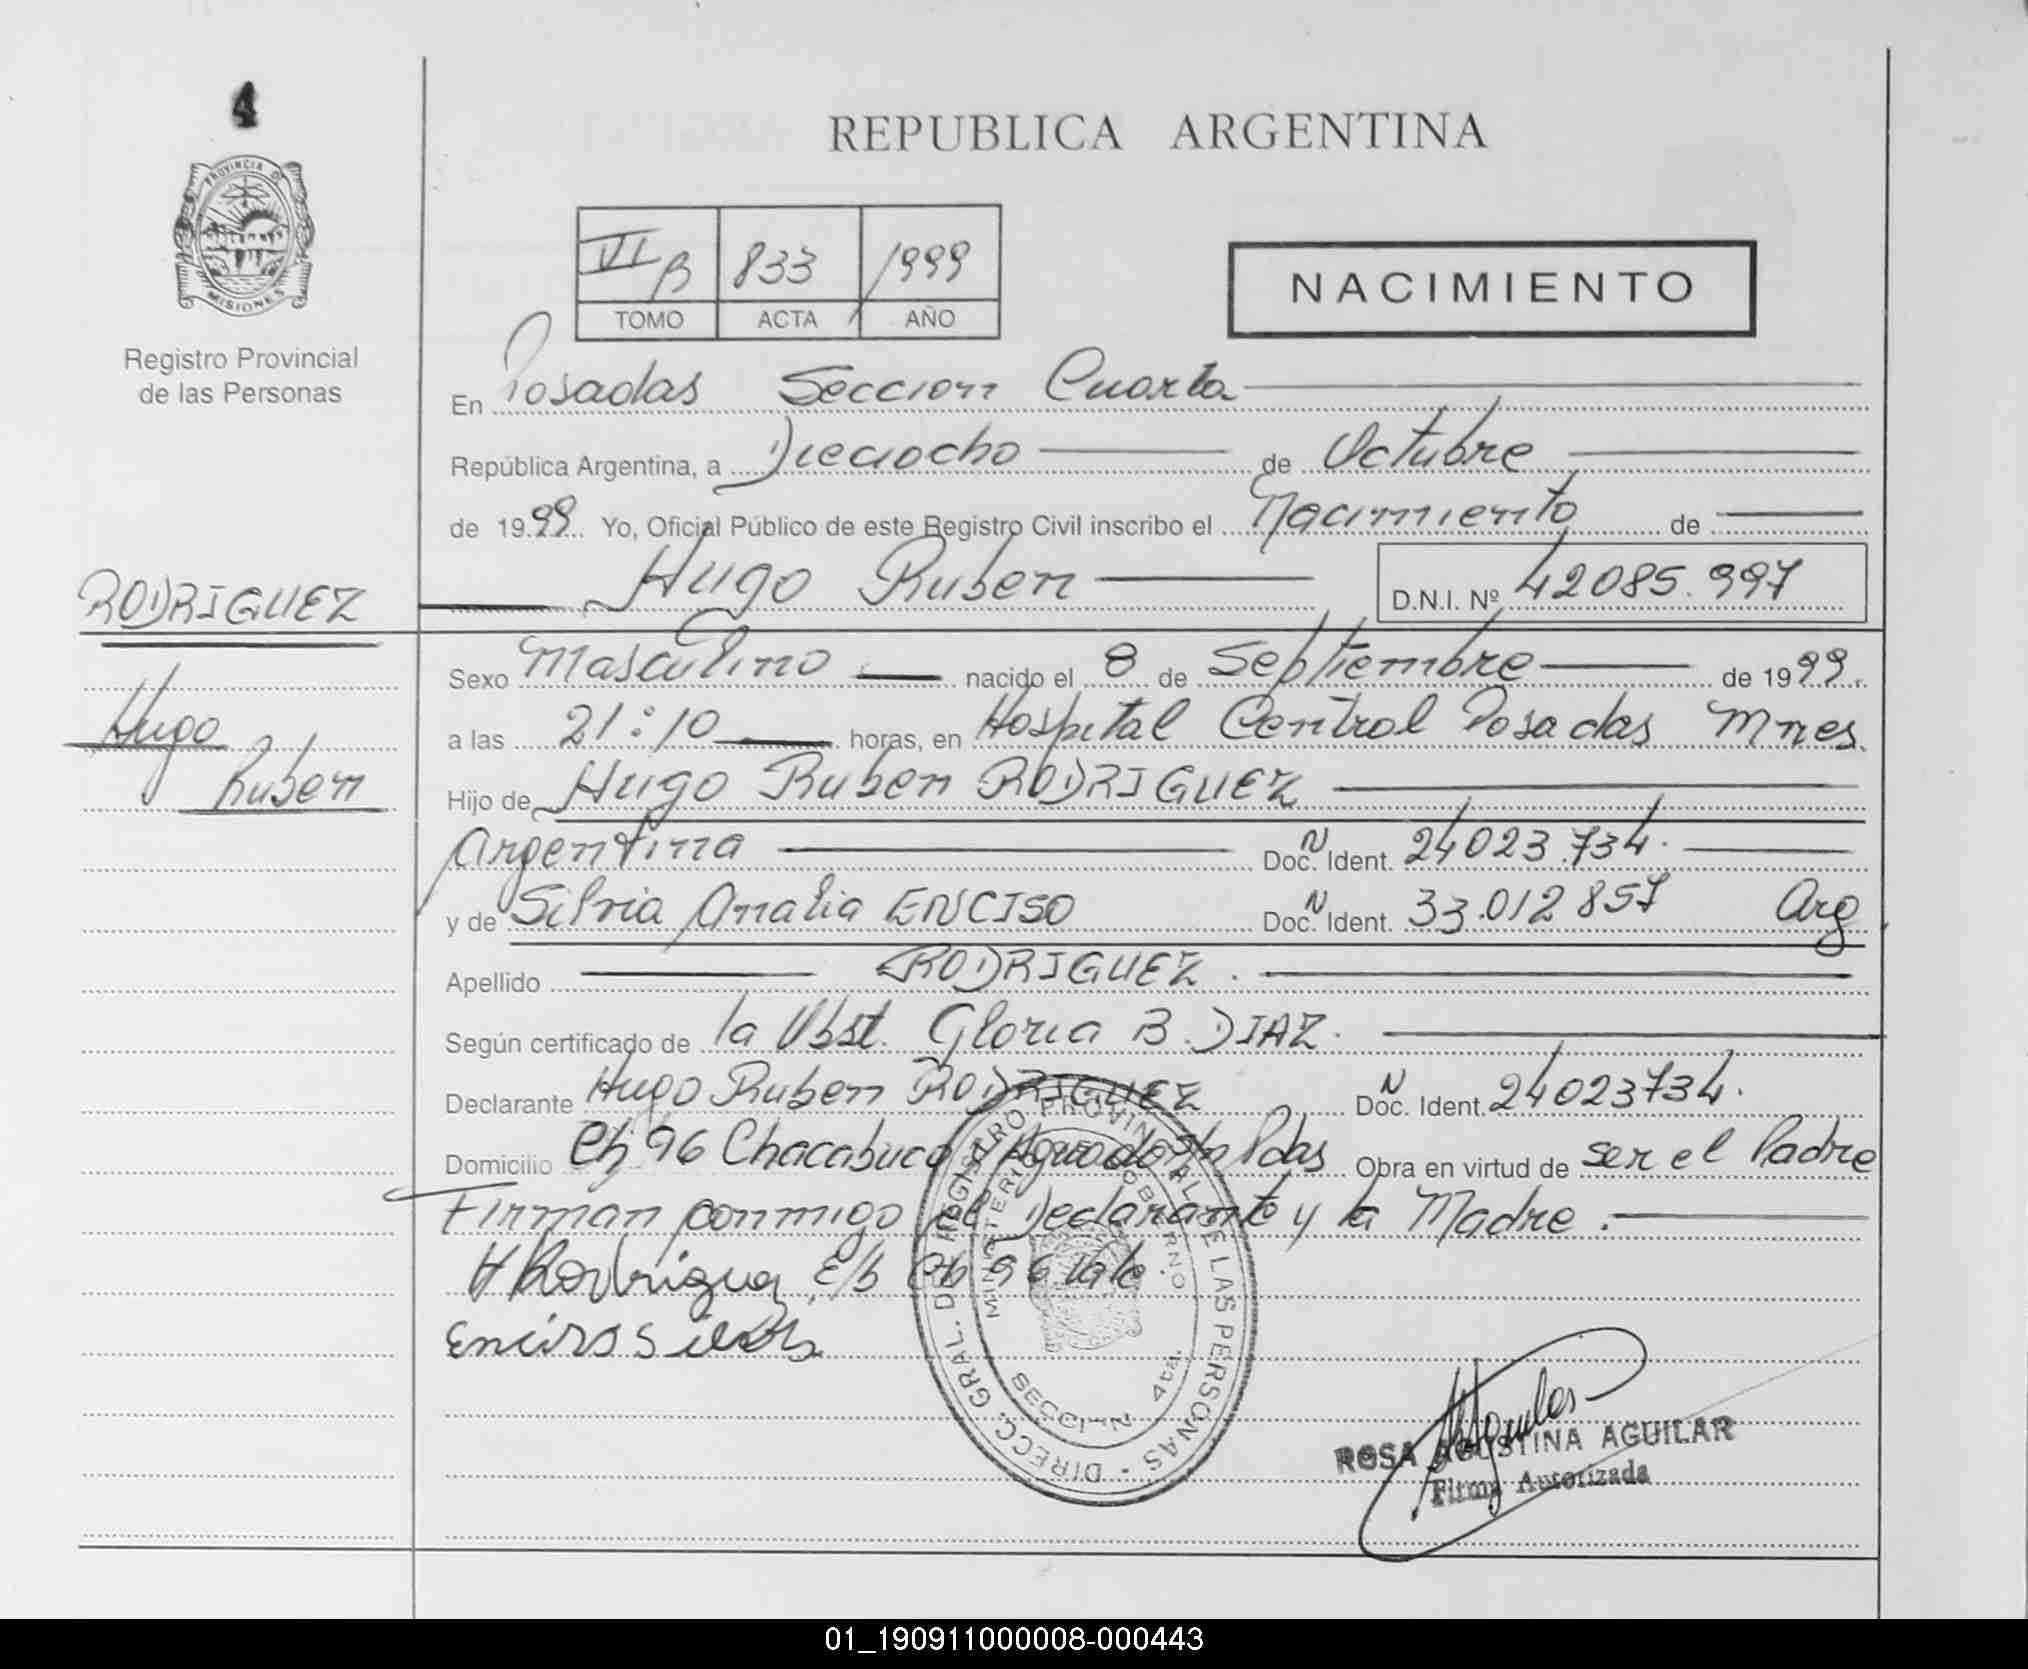 4
PROVINCIA D
MISIONES
Registro Provincial
de las Personas
RODRIGUEZ
Hugo
Ruben
REPUBLICA ARGENTINA
VI B 833 1999
TOMO ACTA AÑO
NACIMIENTO
En Posadas Seccion Cuarta
República Argentina, a Dieciocho de Octubre
de 1999 Yo, Oficial Público de este Registro Civil inscribo el Nacimiento de
Hugo Ruben D.N.I. Nº 42085.997
Sexo Masculino nacido el 8 de Septiembre de 1999.
a las 21:10 horas, en Hospital Central Posadas Mnes.
Hijo de Hugo Ruben RODRIGUEZ
Argentina Doc. N Ident. 24023.734.
y de Silvia Analia ENCISO Doc. N Ident. 33.012857 Arg
Apellido RODRIGUEZ.
Según certificado de la Obst. Gloria B. DIAZ.
Declarante Hugo Ruben RODRIGUEZ Doc. N Ident. 24023734.
Domicilio Ch 96 Chacabuco Pdas Obra en virtud de ser el Padre
Firman conmigo el Declarante y la Madre.
H Rodrigue E/L Ch 96 Vale.
Enciso Silvia
DIRECC. GRAL. DE REGISTRO PROVINCIAL DE LAS PERSONAS
MINISTERIO DE GOBIERNO
SECCION 4ta.
ROSA AGUSTINA AGUILAR
Firma Autorizada
01_190911000008-000443